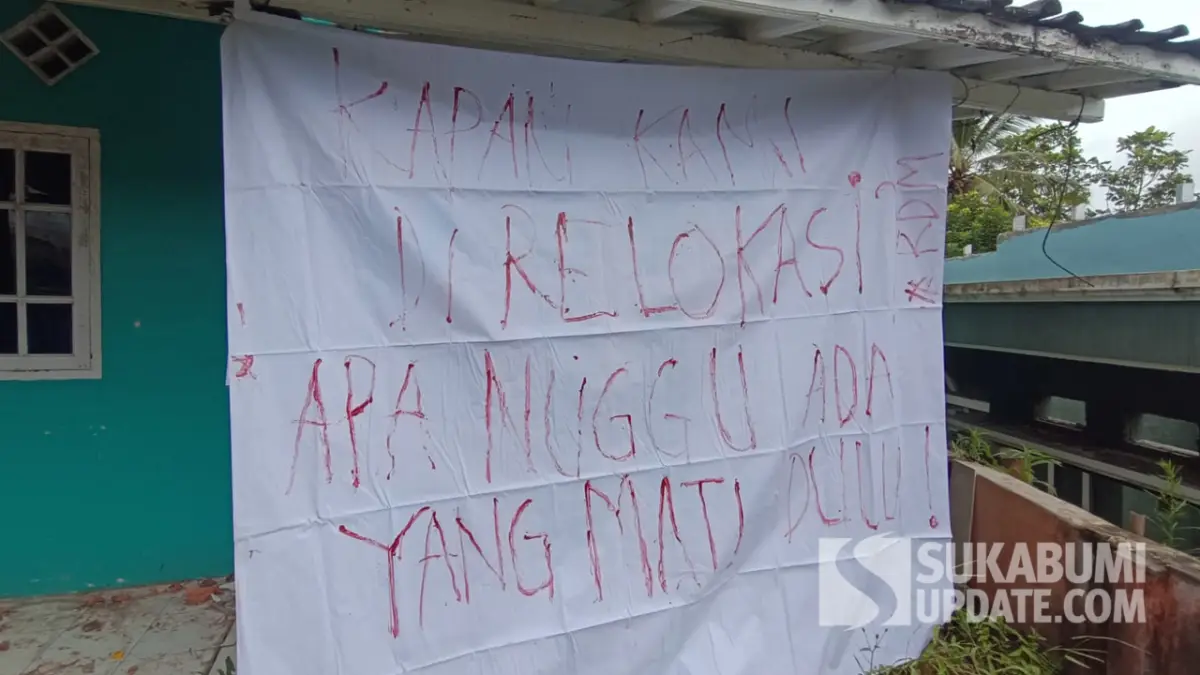 KAPAN KAMI
DI RELOKASI?
APA NUGGU ADA
YANG MATI DULU!
RDM
SUKABUMI
UPDATE.COM